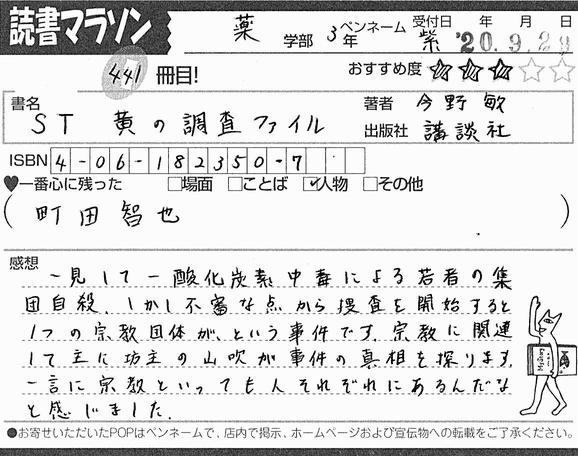 読書マラソン
薬 学部 3年 ペンネーム 紫 受付日 年 月 日 '20.9.29
441 冊目! おすすめ度 ★★★☆☆
書名 ST 黄の調査ファイル
著者 今野 敏
出版社 講談社
ISBN 4-06-182350-7
♥一番心に残った □場面 □ことば ☑人物 □その他
(町田智也)
感想
一見して一酸化炭素中毒による若者の集
団自殺、しかし不審な点から捜査を開始すると
1つの宗教団体が、という事件です。宗教に関連
して主に坊主の山吹が事件の真相を探ります。
一言に宗教といっても人それぞれにあるんだな
と感じました。
●お寄せいただいたPOPはペンネームで、店内で掲示、ホームページおよび宣伝物への転載をご了承ください。